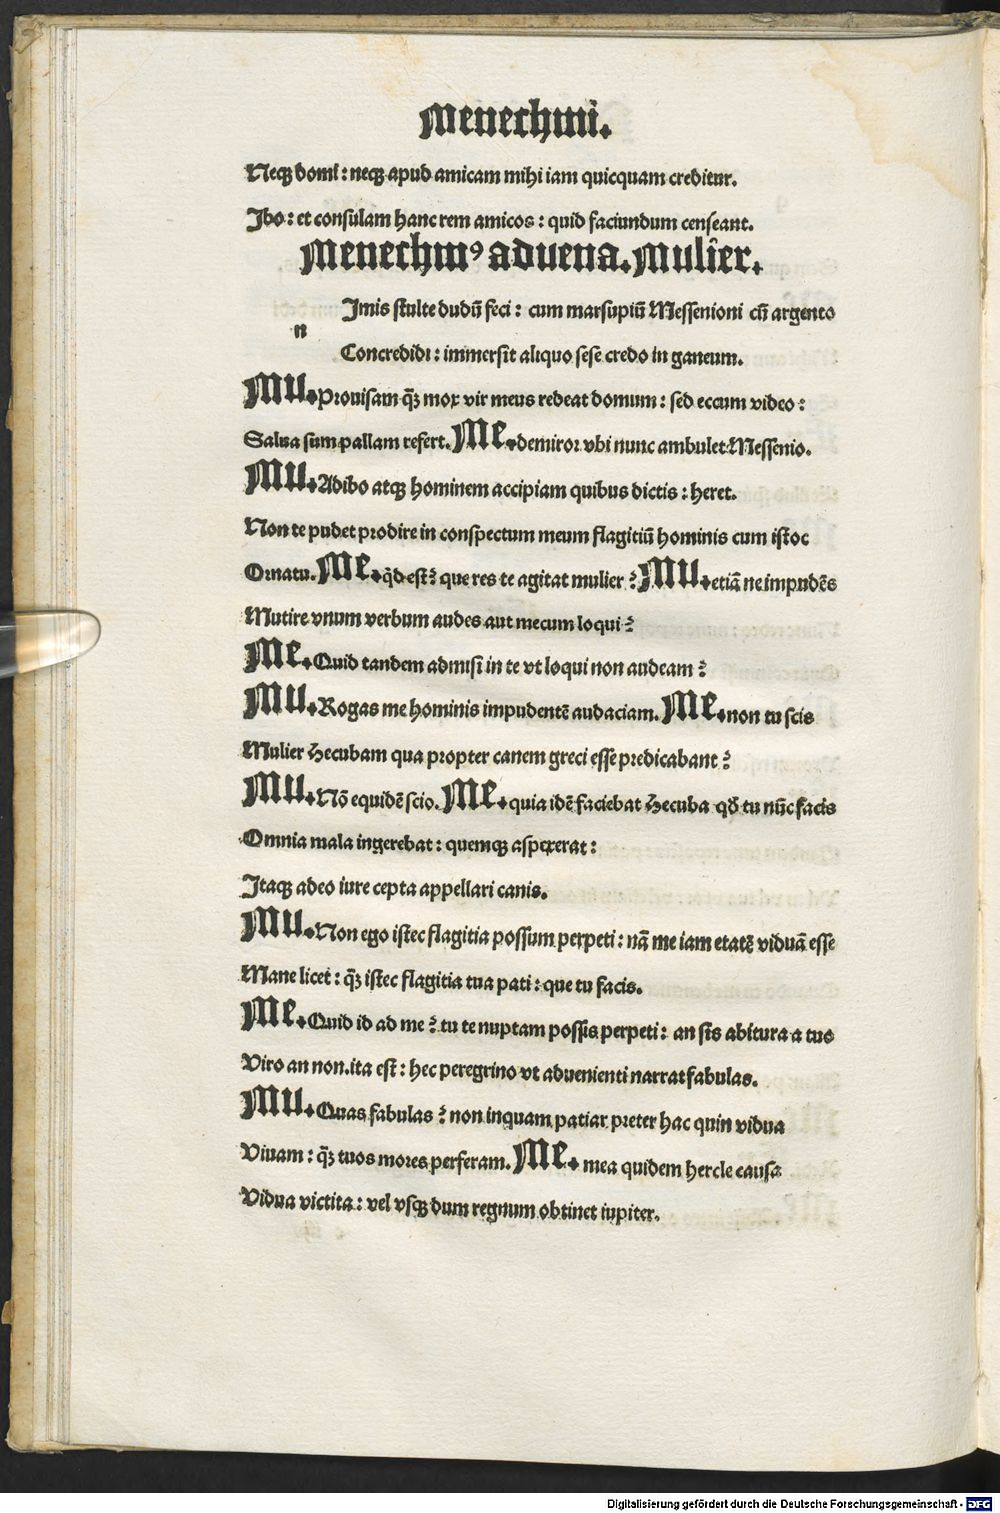 Menechmi.
Neqꝫ domi : neqꝫ apud amicam mihi iam quicquam creditur.
Ibo : et consulam hanc rem amicos : quid faciundum censeant.
Menechmꝰ aduena. Mulier.
Imis stulte dudū feci : cum marsupiū Messenioni cū argento
n
Concredidi : immersit aliquo sese credo in ganeum.
Mu. Prouisam q̄ꝫ mox vir meus redeat domum : sed eccum video :
Salua sum pallam refert. Me. demiror vbi nunc ambulet Messenio.
Mu. Adibo atqꝫ hominem accipiam quibus dictis : heret.
Non te pudet prodire in conspectum meum flagitiū hominis cum istoc
Ornatu. Me. qd̄ est? que res te agitat mulier? Mu. etiā ne impudēs
Mutire vnum verbum audes aut mecum loqui?
Me. Quid tandem admisi in te vt loqui non audeam?
Mu. Rogas me hominis impudentē audaciam. Me. non tu scis
Mulier Hecubam qua propter canem greci esse predicabant?
Mu. Nō equidē scio. Me. quia idē faciebat Hecuba qd̄ tu nūc facis
Omnia mala ingerebat : quemqꝫ aspexerat :
Itaqꝫ adeo iure cepta appellari canis.
Mu. Non ego istec flagitia possum perpeti : nā me iam etatē viduā esse
Mane licet : q̄ꝫ istec flagitia tua pati : que tu facis.
Me. Quid id ad me? tu te nuptam possis perpeti : an sis abitura a tuo
Viro an non. ita est : hec peregrino vt aduenienti narrat fabulas.
Mu. Quas fabulas? non inquam patiar preter hac quin vidua
Viuam : q̄ꝫ tuos mores perferam. Me. mea quidem hercle causa
Vidua victita : vel vsqꝫ dum regnum obtinet iupiter.
Digitalisierung gefördert durch die Deutsche Forschungsgemeinschaft - DFG